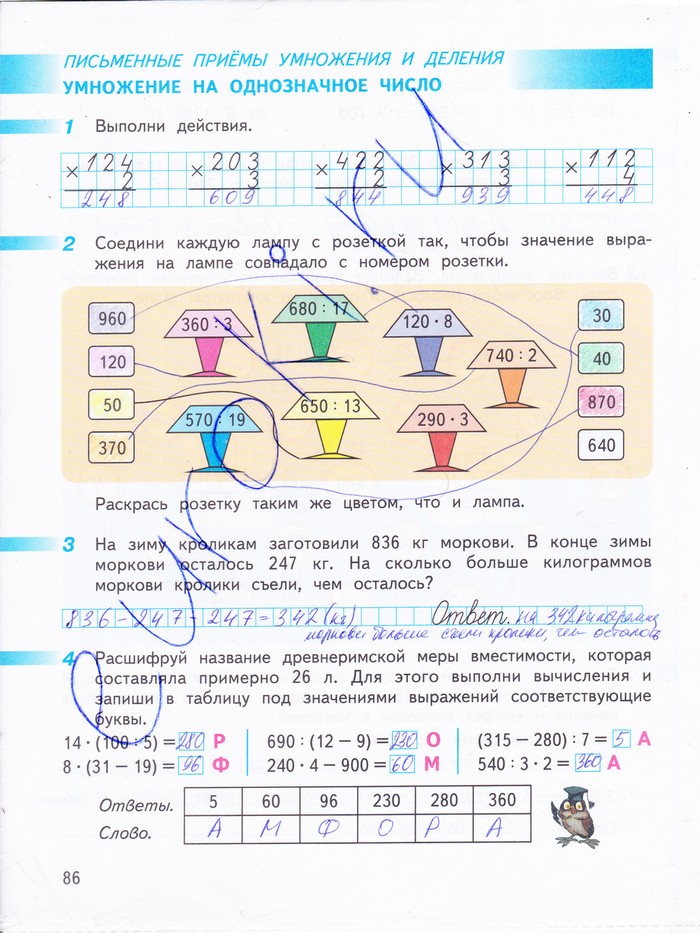 ПИСЬМЕННЫЕ ПРИЁМЫ УМНОЖЕНИЯ И ДЕЛЕНИЯ
УМНОЖЕНИЕ НА ОДНОЗНАЧНОЕ ЧИСЛО
1 Выполни действия.
× 124 × 203 × 422 × 313 × 112
2 3 2 3 4
248 609 844 939 448
2 Соедини каждую лампу с розеткой так, чтобы значение выра-
жения на лампе совпадало с номером розетки.
960 360 : 3 680 : 17 120 · 8 30
120 740 : 2 40
50 570 : 19 650 : 13 290 · 3 870
370 640
Раскрась розетку таким же цветом, что и лампа.
3 На зиму кроликам заготовили 836 кг моркови. В конце зимы
моркови осталось 247 кг. На сколько больше килограммов
моркови кролики съели, чем осталось?
836 - 247 - 247 = 342 (кг) Ответ. на 342 килограмма
моркови больше съели кролики, чем осталось
4 Расшифруй название древнеримской меры вместимости, которая
составляла примерно 26 л. Для этого выполни вычисления и
запиши в таблицу под значениями выражений соответствующие
буквы.
14 · (100 : 5) = 280 Р 690 : (12 – 9) = 230 О (315 – 280) : 7 = 5 А
8 · (31 – 19) = 96 Ф 240 · 4 – 900 = 60 М 540 : 3 · 2 = 360 А
Ответы. 5 60 96 230 280 360
Слово. А М Ф О Р А
86